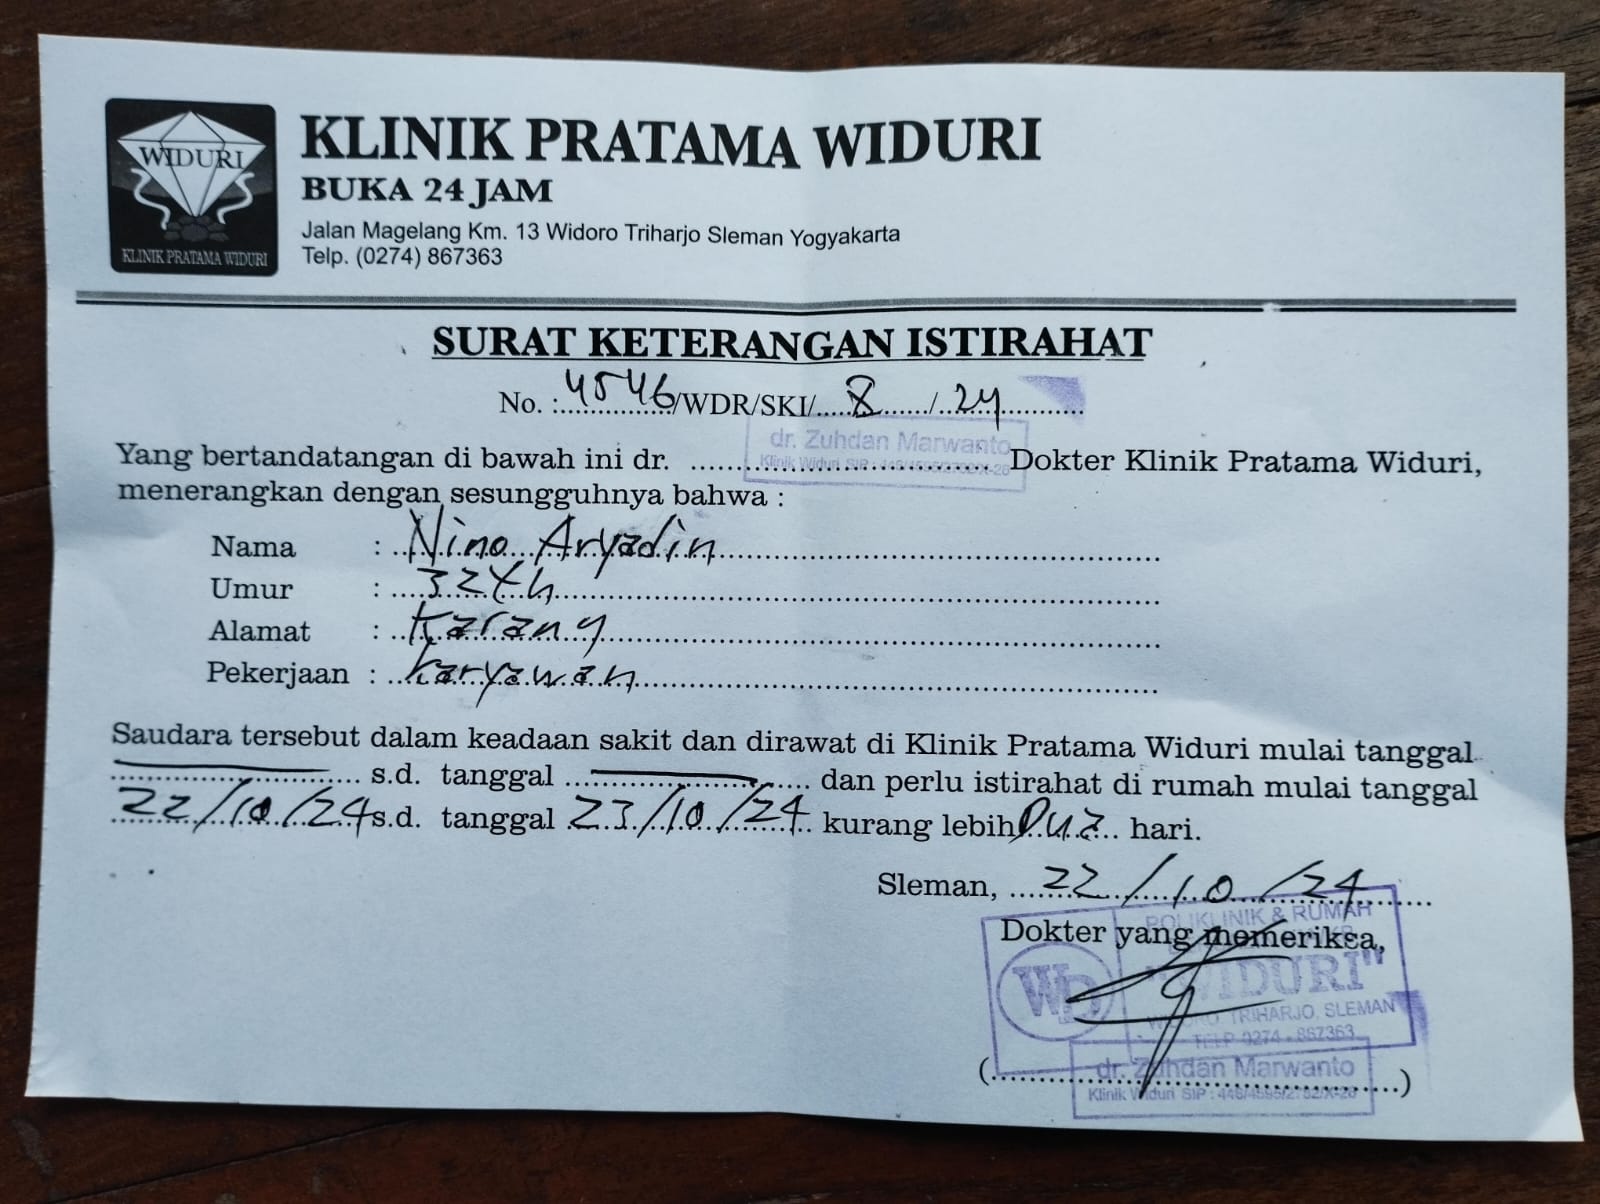 WIDURI
KLINIK PRATAMA WIDURI
KLINIK PRATAMA WIDURI
BUKA 24 JAM
Jalan Magelang Km. 13 Widoro Triharjo Sleman Yogyakarta
Telp. (0274) 867363
SURAT KETERANGAN ISTIRAHAT
No. : 4546/WDR/SKI/ 8 / 24
Yang bertandatangan di bawah ini dr. dr. Zuhdan Marwanto Dokter Klinik Pratama Widuri,
Klinik Widuri SIP :
menerangkan dengan sesungguhnya bahwa :
Nama : Nino Aryadin
Umur : 32 th
Alamat : Karang
Pekerjaan : karyawan
Saudara tersebut dalam keadaan sakit dan dirawat di Klinik Pratama Widuri mulai tanggal
s.d. tanggal dan perlu istirahat di rumah mulai tanggal
22/10/24 s.d. tanggal 23/10/24 kurang lebih Dua hari.
Sleman, 22/10/24
POLIKLINIK & RUMAH
Dokter yang memeriksa,
WD "WIDURI"
WIDORO, TRIHARJO, SLEMAN
TELP 0274 - 867363
dr. Zuhdan Marwanto
Klinik Widuri SIP :